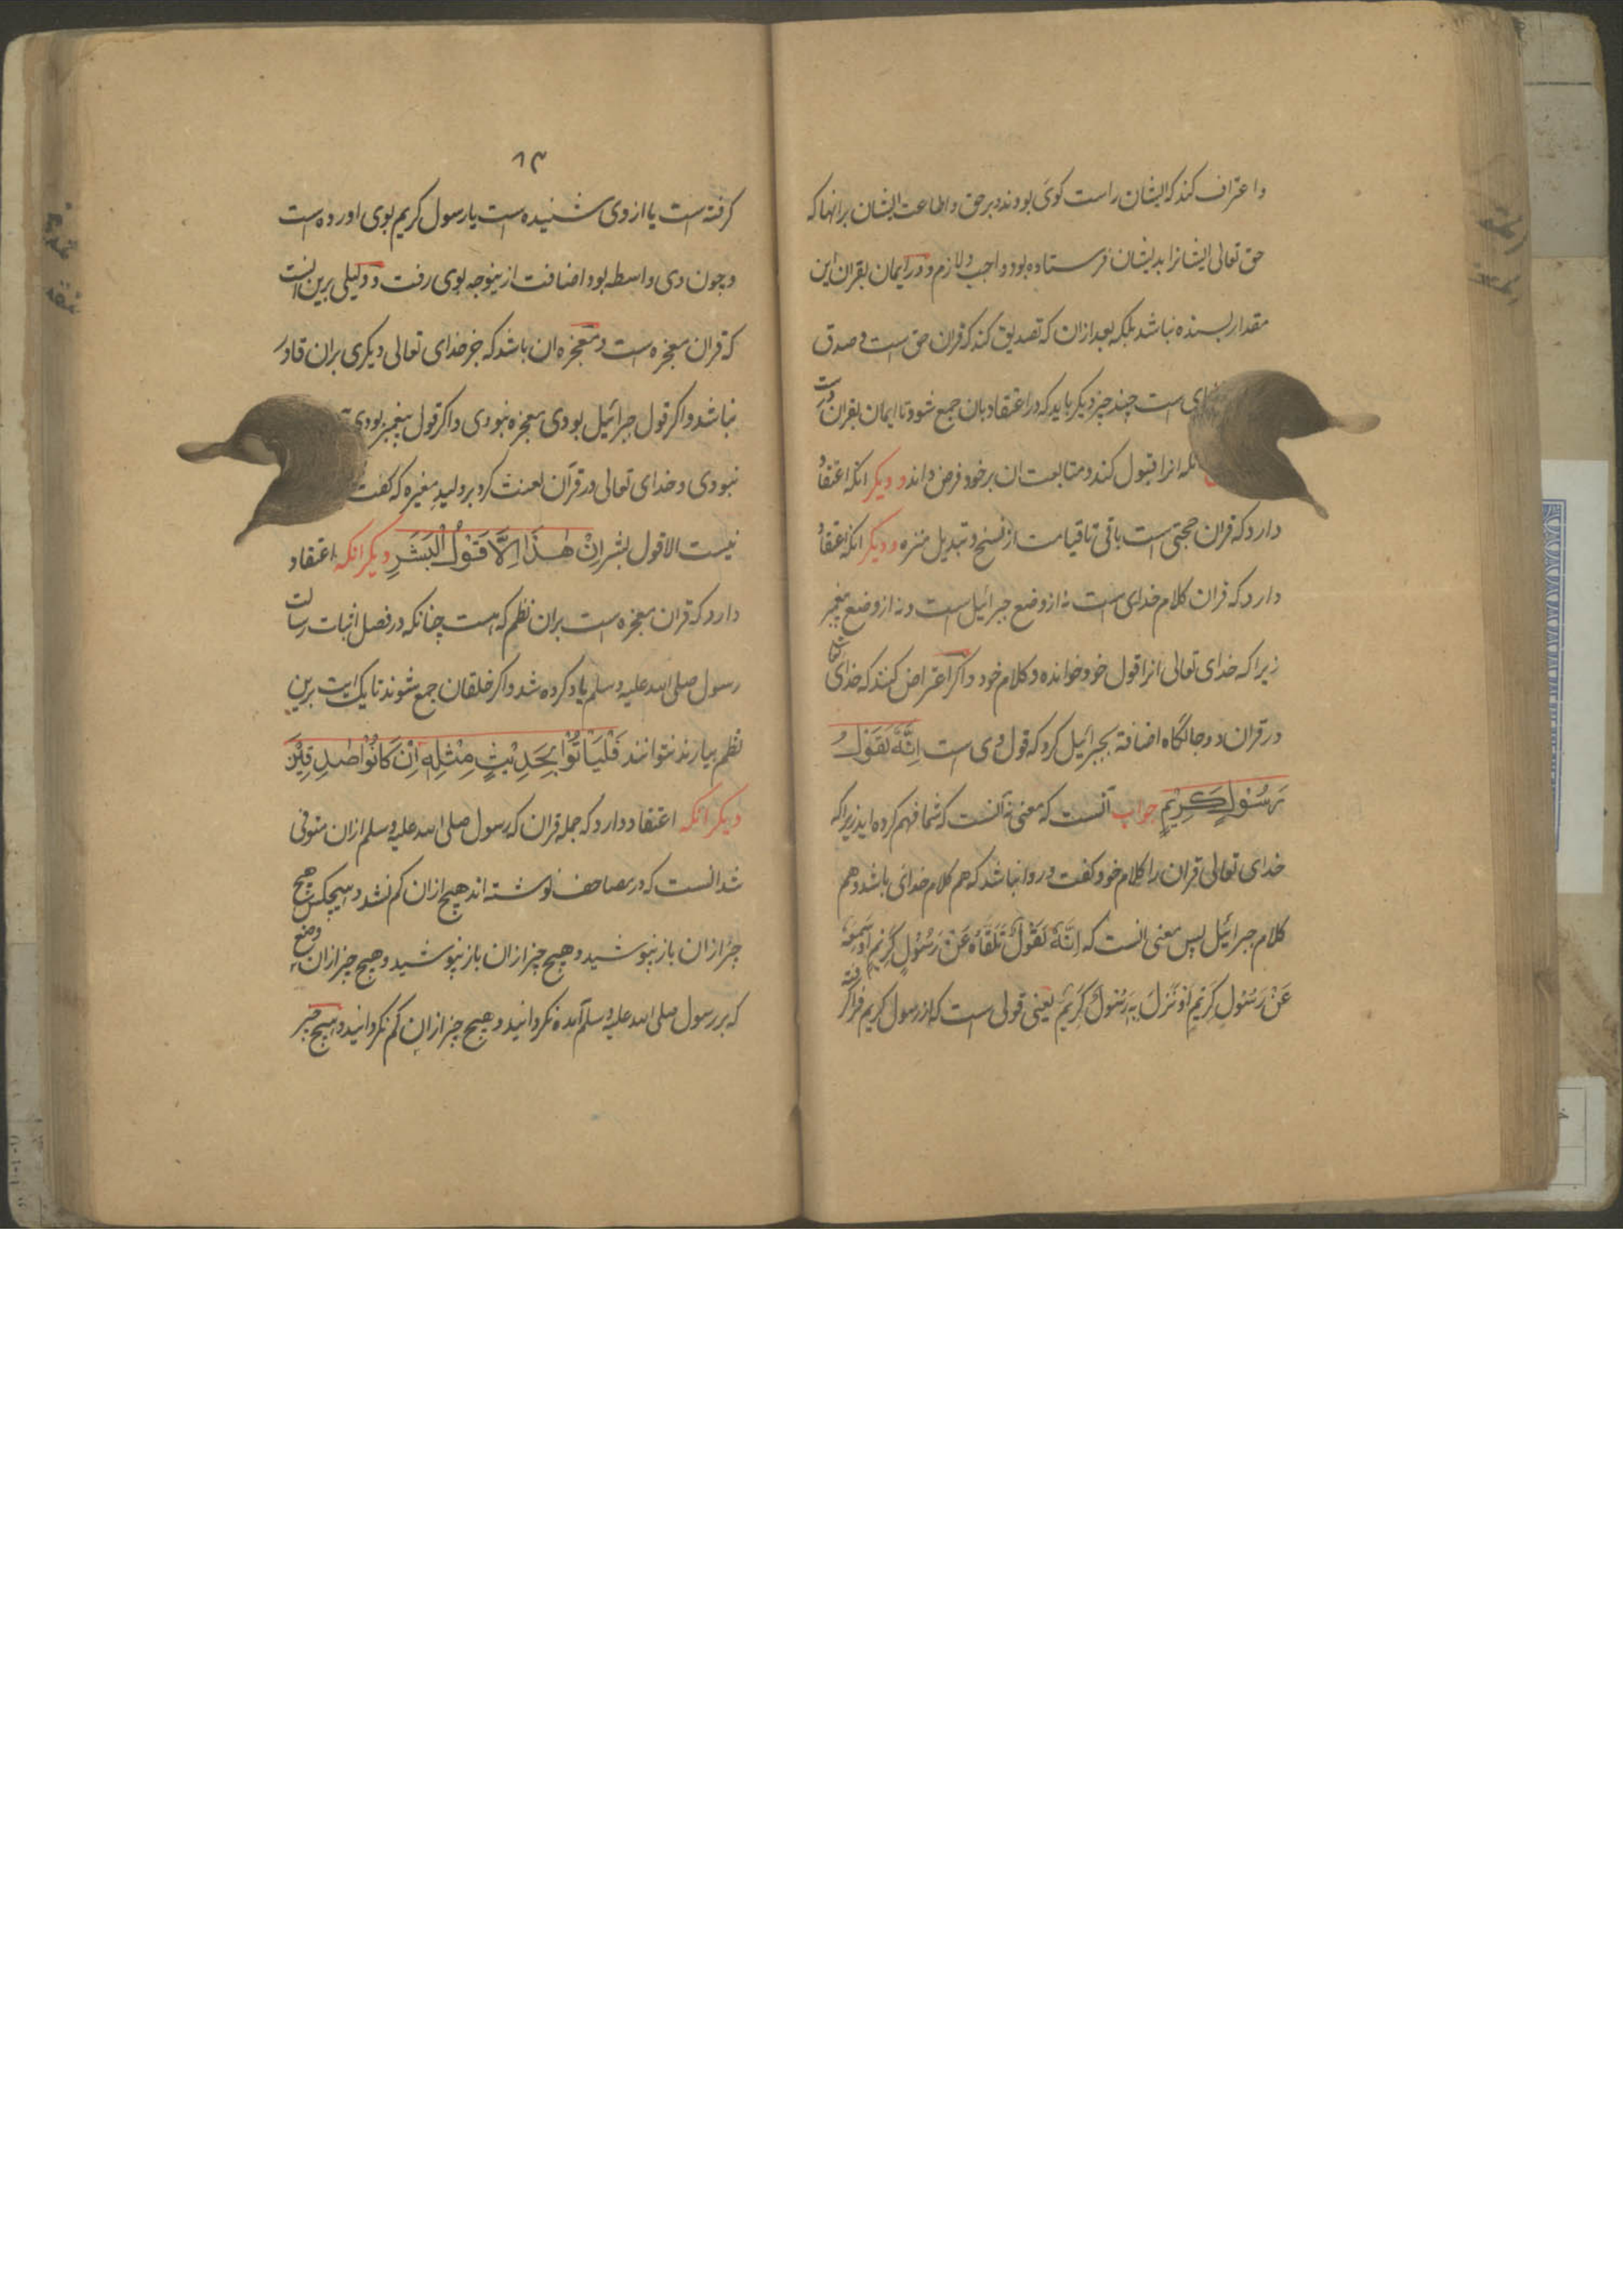 واعتراف کند که ایشان راست کوی بودند و بر حق و اطاعت ایشان بر انها که
حق تعالی ایشانرا بدیشان فرستاده بود واجب و لازم و در ایمان بقران این
مقدار بسنده نباشد بلکه بعد ازان که تصدیق کند که قران حق است و صدق
است چند چیز دیکر باید که در اعتقاد بان جمع شود تا ایمان بقران درست
انرا قبول کند و متابعت ان بر خود فرض داند و دیکر انکه اعتقاد
دارد که قران حجتی است باقی تا قیامت از نسخ و تبدیل منزه و دیکر انکه اعتقاد
دارد که قران کلام خدای است نه از وضع جبرائیل است و نه از وضع پیغمبر
زیرا که خدای تعالی انرا قول خود خوانده و کلام خود و اکر اعتراض کنند که خدای تعالی
در قران دو جایکاه اضافة بجبرائیل کرد که قول وی است اِنَّهُ لَقَوْلُ
رَسُوْلٍ كَرِيْمٍ جواب آنست که معنی نه آنست که شما فهم کرده اید زیرا که
خدای تعالی قران را کلام خود کفت و روا نباشد که هم کلام خدای باشد و هم
کلام جبرائیل پس معنی انست که اِنَّهُ لَقَوْلٌ تَلَقَّاهُ عَنْ رَسُوْلٍ كَرِيْمٍ اَوْ سَمِعَهُ
عَنْ رَسُوْلٍ كَرِيْمٍ اَوْ نَزَلَ بِهِ رَسُوْلٌ كَرِيْمٌ یعنی قولی است که از رسول کریم فرا کرفته
۸۳
کرفته است یا از وی شنیده است یا رسول کریم بوی اورده است
و چون وی واسطه بود اضافت ازینوجه بوی رفت و دلیلی برین انست
که قران معجزه است و معجزه ان باشد که جز خدای تعالی دیکری بران قادر
نباشد و اکر قول جبرائیل بودی معجزه نبودی و اکر قول پیغمبر بودی
نبودی و خدای تعالی در قرآن لعنت کرد بر ولید مغیره که کفت
نیست الا قول بشر اِنْ هٰذَا اِلَّا قَوْلُ الْبَشَرِ دیکر انکه اعتقاد
دارد که قران معجزه است بران نظم که هست چنانکه در فصل اثبات رسالت
رسول صلی الله علیه وسلم یاد کرده شد و اکر خلقان جمع شوند تا یک ایت برین
نظم بیارند نتوانند فَلْيَأْتُوْا بِحَدِيْثٍ مِثْلِهِ اِنْ كَانُوْا صٰدِقِيْنَ
دیکر انکه اعتقاد دارد که جمله قران که رسول صلی الله علیه وسلم ازان متوفی
شد انست که در مصاحف نوشته اند هیچ ازان کم نشد و هیچکس هیچ
چیز ازان باز نپوشید و هیچ چیز ازان باز نپوشید و هیچ چیز ازان وضع
که بر رسول صلی الله علیه وسلم آمده نکردانید و هیچ چیز ازان کم نکردانید و هیچ